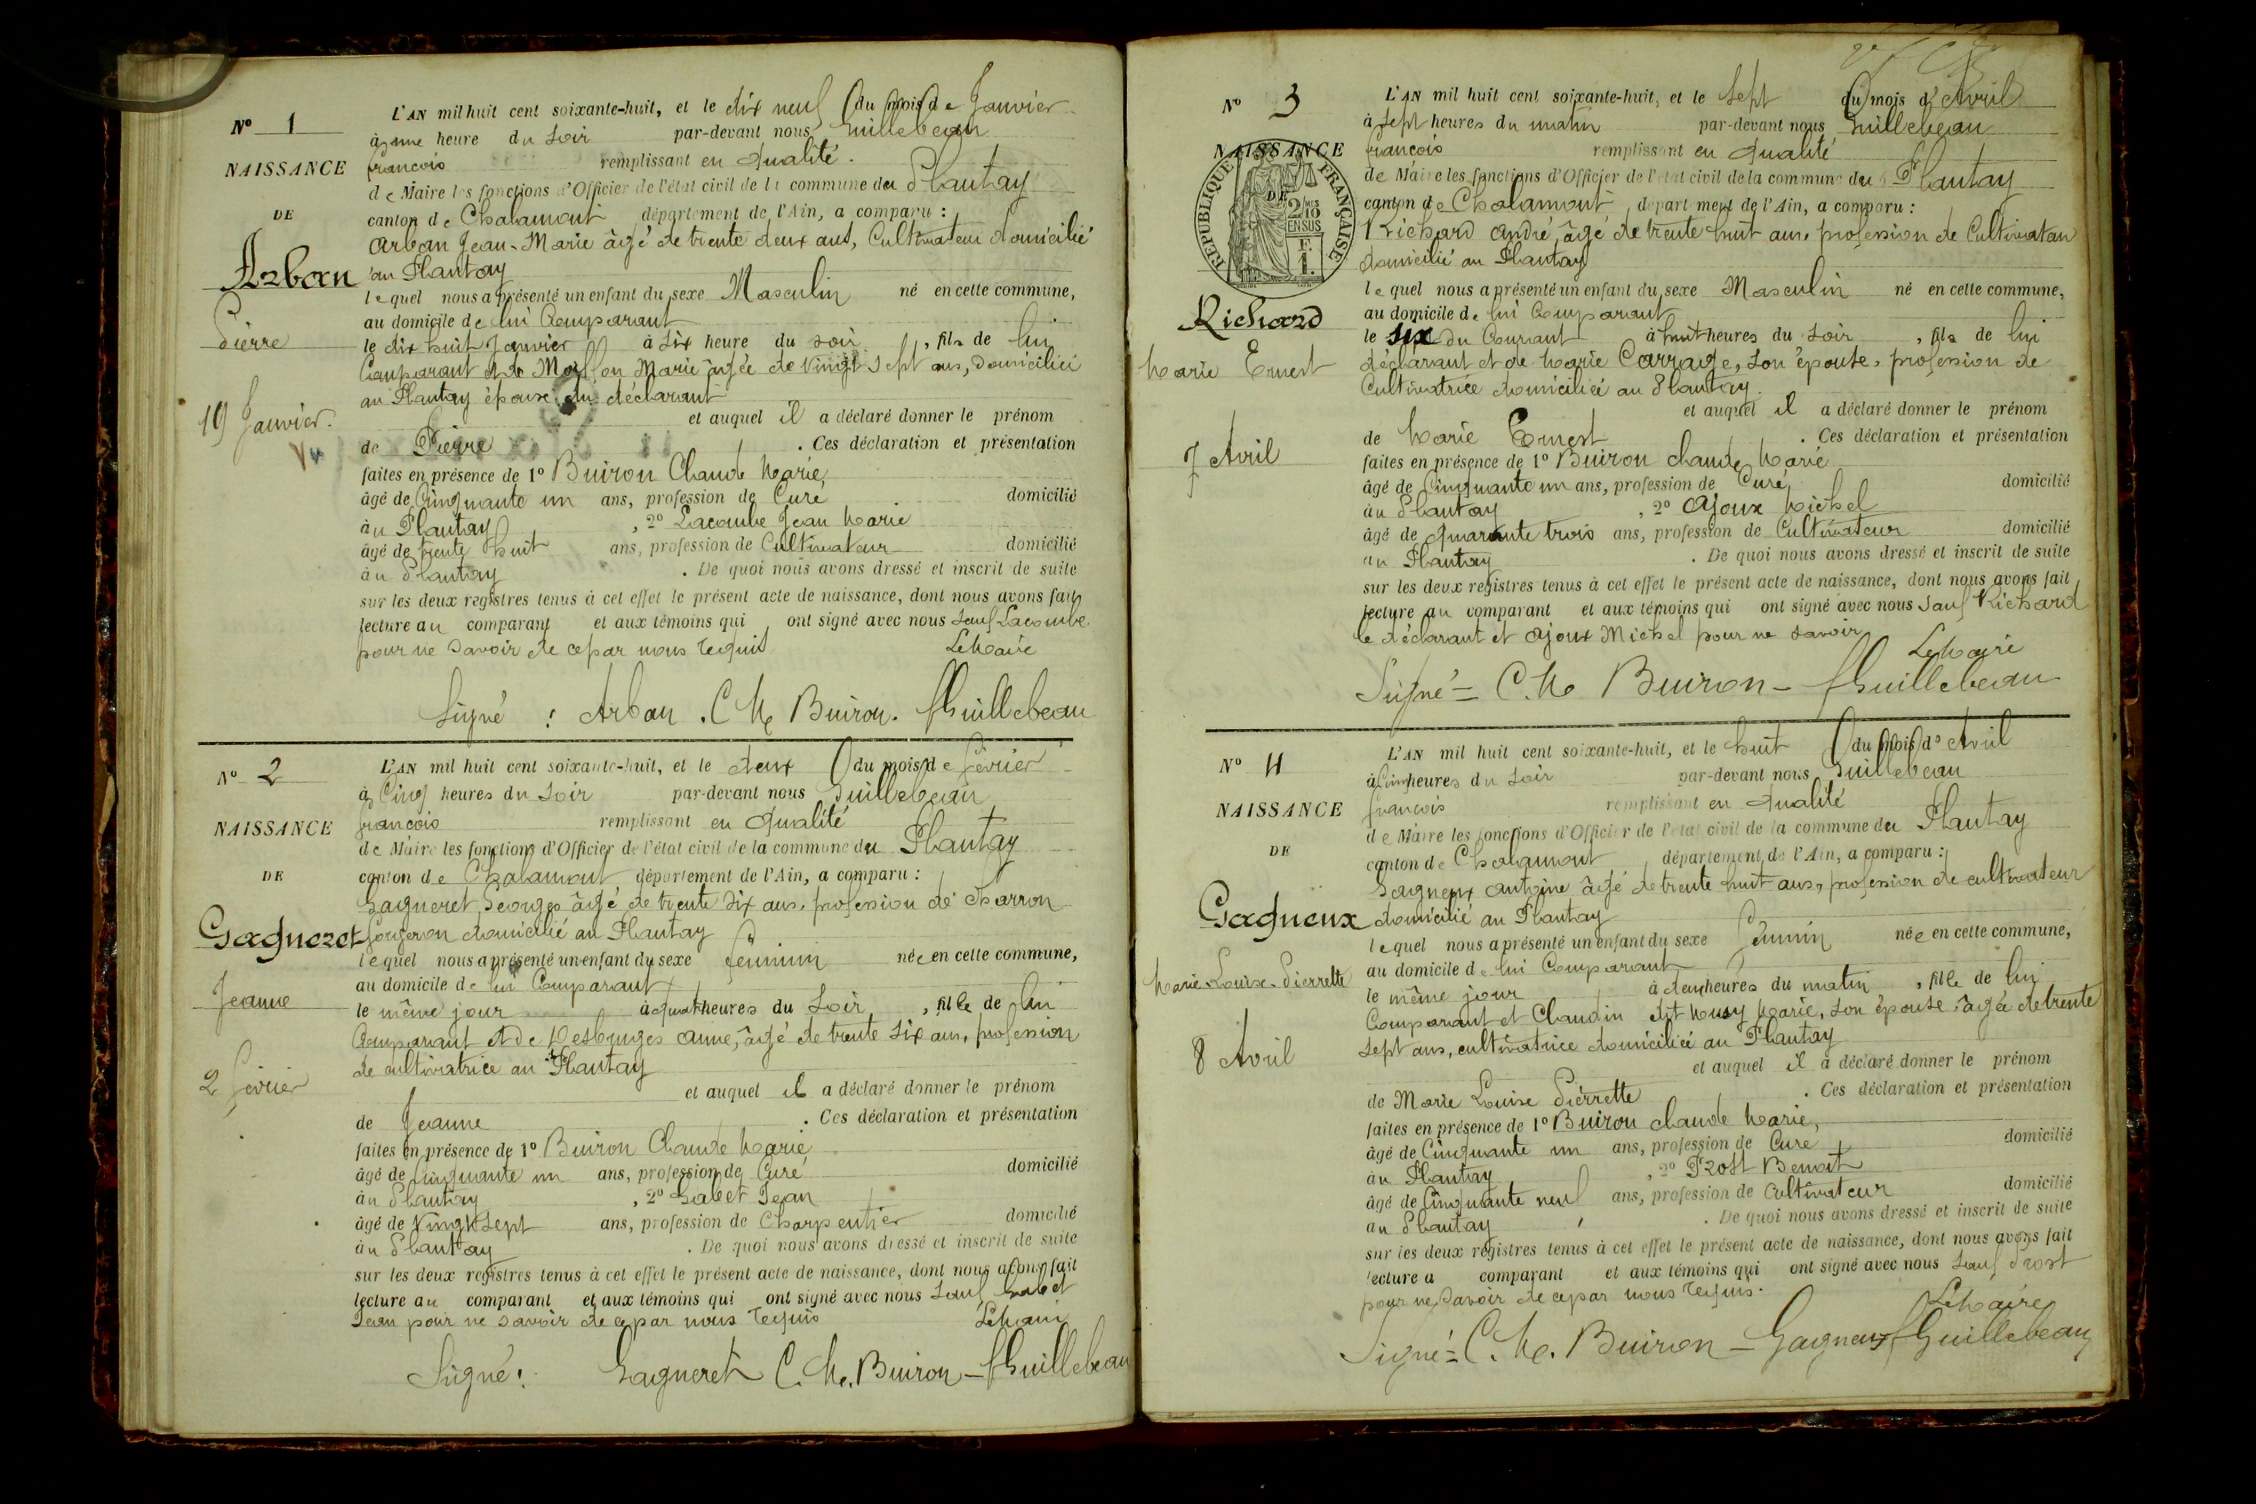 N° 1
NAISSANCE
DE
Arban
Pierre
19 Janvier.
Vu
L'AN mil huit cent soixante-huit, et le dix neuf du mois de Janvier
à une heure du soir par-devant nous Guillebeau
francois remplissant en qualité.
de Maire les fonctions d'Officier de l'état civil de la commune du Plantay
canton de Chalamont département de l'Ain, a comparu :
Arban Jean-Marie âgé de trente deux ans, Cultivateur domicilié
au Plantay
lequel nous a présenté un enfant du sexe Masculin né en cette commune,
au domicile de lui Comparant
le dix huit Janvier à six heure du soir, fils de lui
Comparant et de Marie âgée de Vingt sept ans, domiciliée
au Plantay épouse du déclarant
et auquel il a déclaré donner le prénom
de Pierre. Ces déclaration et présentation
faites en présence de 1° Buiron Claude Marie,
âgé de Cinquante un ans, profession de Curé domicilié
au Plantay, 2° Lacombe Jean Marie
âgé de trente huit ans, profession de Cultivateur domicilié
au Plantay. De quoi nous avons dressé et inscrit de suite
sur les deux registres tenus à cet effet le présent acte de naissance, dont nous avons fait
lecture au comparant et aux témoins qui ont signé avec nous sauf Lacombe
pour ne savoir de ce par nous requis Le Maire
Signé : Arban. C M Buiron. f Guillebeau
N° 2
NAISSANCE
DE
Gagneret
Jeanne
2 février
L'AN mil huit cent soixante-huit, et le deux du mois de février
à Cinq heures du soir par-devant nous Guillebeau
francois remplissant en qualité
de Maire les fonctions d'Officier de l'état civil de la commune du Plantay
canton de Chalamont département de l'Ain, a comparu :
Gagneret Georges âgé de trente six ans, profession de charron
forgeron domicilié au Plantay
lequel nous a présenté un enfant du sexe féminin née en cette commune,
au domicile de lui Comparant
le même jour à quatre heures du soir, fille de lui
Comparant et de Desbuges anne, âgé de trente six ans, profession
de cultivatrice au Plantay
et auquel il a déclaré donner le prénom
de Jeanne. Ces déclaration et présentation
faites en présence de 1° Buiron Claude Marie
âgé de Cinquante un ans, profession de Curé domicilié
au Plantay, 2° Gabet Jean
âgé de Vingt sept ans, profession de Charpentier domicilié
au Plantay. De quoi nous avons dressé et inscrit de suite
sur les deux registres tenus à cet effet le présent acte de naissance, dont nous avons fait
lecture au comparant et aux témoins qui ont signé avec nous sauf Gabet
Jean pour ne savoir de ce par nous requis Le Maire
Signé : Gagneret C. M. Buiron - f Guillebeau
N° 3
NAISSANCE
DE
RÉPUBLIQUE FRANÇAISE
2/10 EN SUS
F. 1.
Richard
Marie Ernest
7 Avril
L'AN mil huit cent soixante-huit, et le sept du mois d'Avril
à sept heures du matin par-devant nous Guillebeau
francois remplissant en qualité
de Maire les fonctions d'Officier de l'état civil de la commune du Plantay
canton de Chalamont, département de l'Ain, a comparu :
Richard André, âgé de trente huit ans, profession de Cultivateur
domicilié au Plantay
lequel nous a présenté un enfant du sexe Masculin né en cette commune,
au domicile de lui Comparant
le six du Courant à huit heures du soir, fils de lui
déclarant et de Marie Carrage, son épouse, profession de
Cultivatrice domiciliée au Plantay.
et auquel il a déclaré donner le prénom
de Marie Ernest. Ces déclaration et présentation
faites en présence de 1° Buiron claude Marie
âgé de Cinquante un ans, profession de Curé, domicilié
au Plantay, 2° Ajoux Michel
âgé de quarante trois ans, profession de Cultivateur domicilié
au Plantay. De quoi nous avons dressé et inscrit de suite
sur les deux registres tenus à cet effet le présent acte de naissance, dont nous avons fait
lecture au comparant et aux témoins qui ont signé avec nous sauf Richard
le déclarant et Ajoux Michel pour ne savoir
Le Maire
Signé = C. M Buiron - f Guillebeau
N° 4
NAISSANCE
DE
Gagneux
Marie-Louise-Pierrette
8 Avril
L'AN mil huit cent soixante-huit, et le huit du mois d'Avril
à Cinq heures du soir par-devant nous Guillebeau
francois remplissant en qualité
de Maire les fonctions d'Officier de l'état civil de la commune du Plantay
canton de Chalamont département de l'Ain, a comparu :
Gagneux Antoine âgé de trente huit ans, profession de cultivateur
domicilié au Plantay
lequel nous a présenté un enfant du sexe féminin née en cette commune,
au domicile de lui Comparant
le même jour à deux heures du matin, fille de lui
Comparant et Claudin dit Marie, son épouse âgée de trente
sept ans, cultivatrice domiciliée au Plantay
et auquel il a déclaré donner le prénom
de Marie Louise Pierrette. Ces déclaration et présentation
faites en présence de 1° Buiron claude Marie,
âgé de Cinquante un ans, profession de Curé domicilié
au Plantay, 2° Prost Benoit
âgé de Cinquante neuf ans, profession de Cultivateur domicilié
au Plantay. De quoi nous avons dressé et inscrit de suite
sur les deux registres tenus à cet effet le présent acte de naissance, dont nous avons fait
lecture a comparant et aux témoins qui ont signé avec nous sauf Prost
pour ne savoir de ce par nous requis.
Le Maire
Signé = C. M. Buiron - Gagneux f Guillebeau